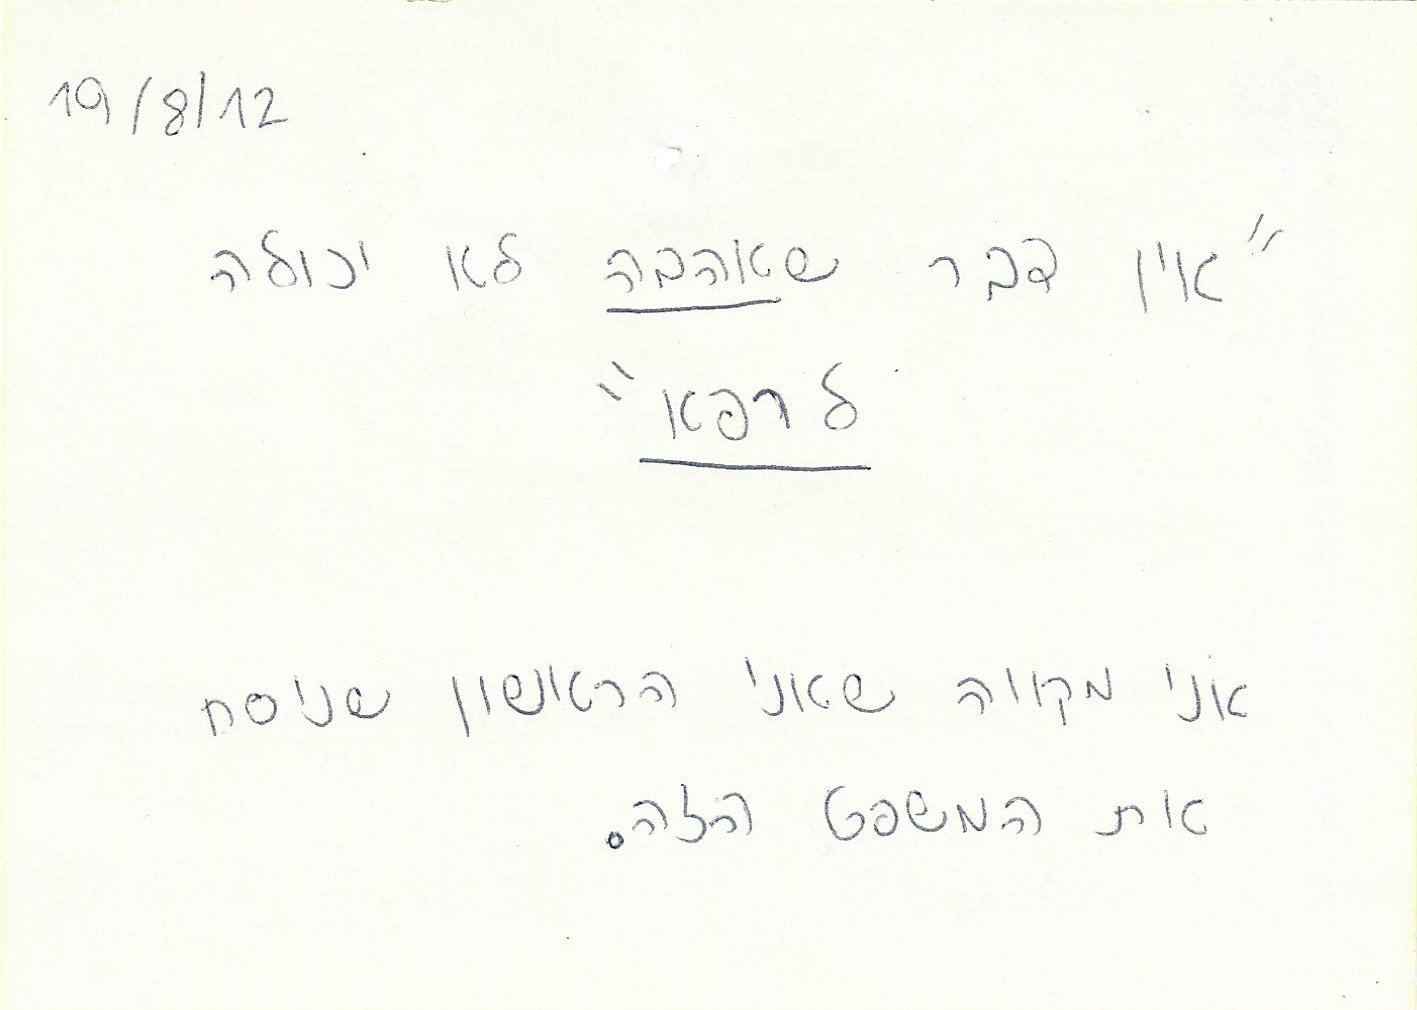 19/8/12
"אין דבר שאהבה לא יכולה
לרפא"
אני מקווה שאני הראשון שניסח
את המשפט הזה.